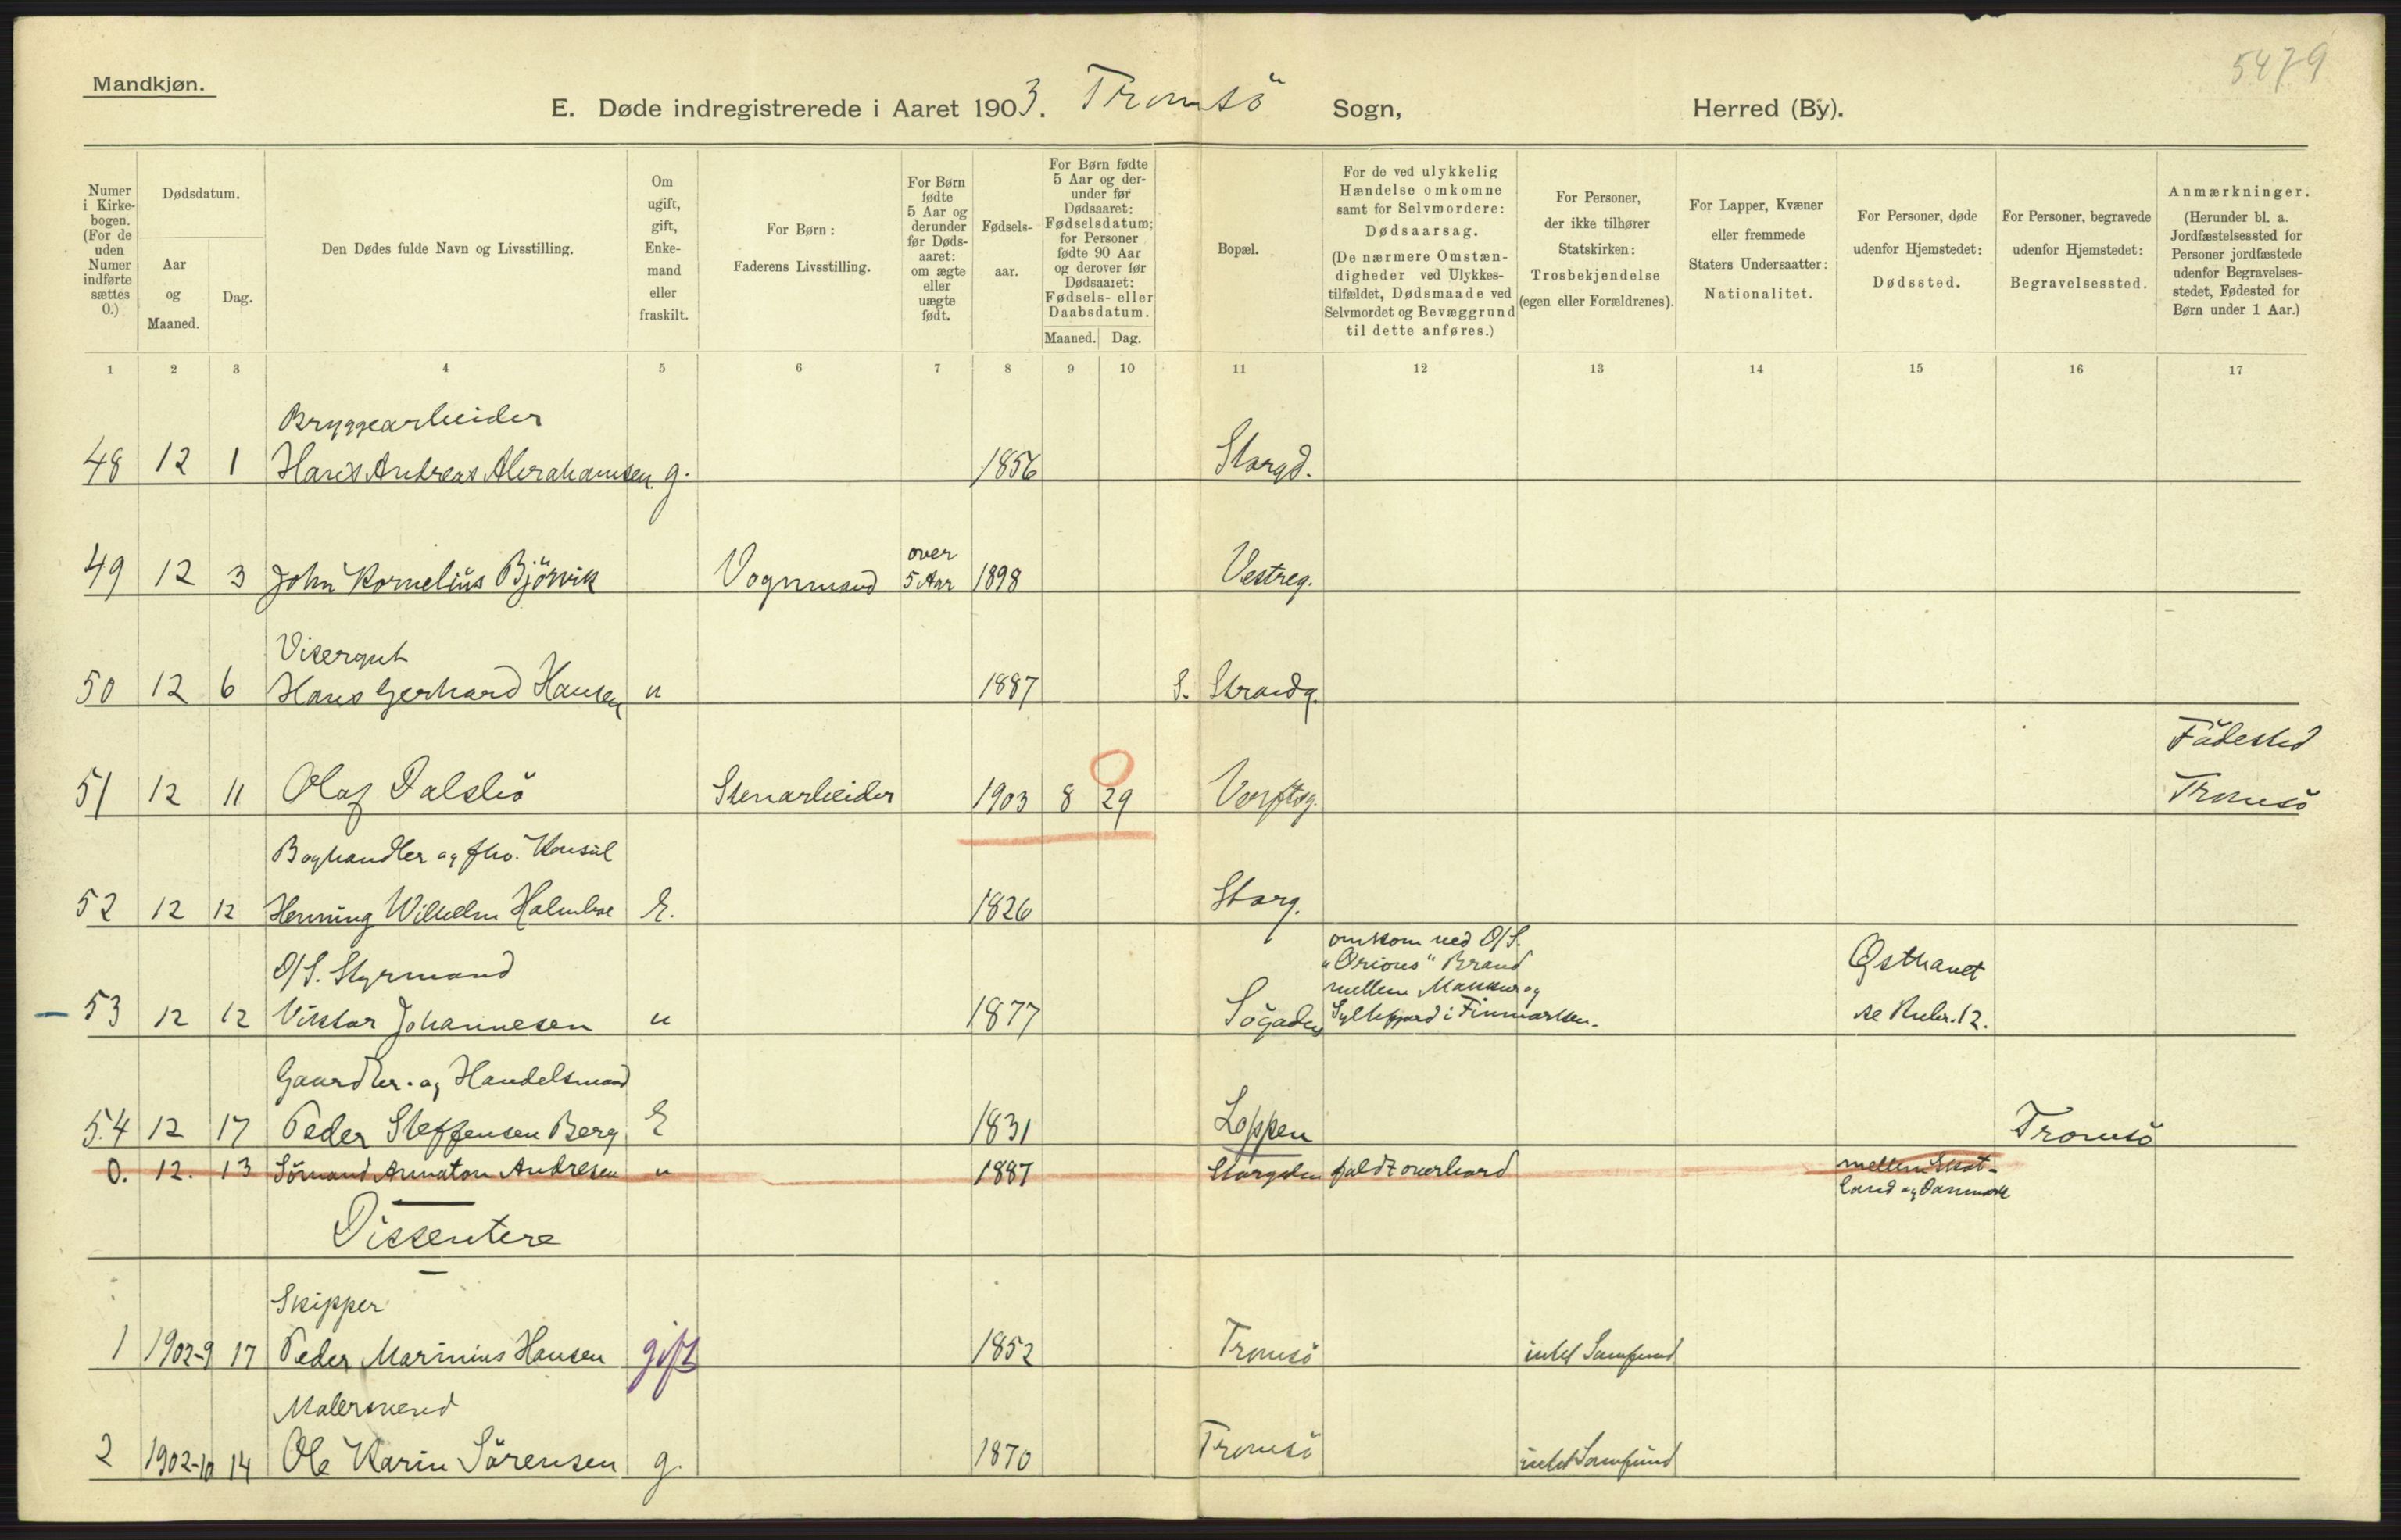 5479
Mandkjøn.
E. Døde indregistrerede i Aaret 1903. Tromsö Sogn, Herred (By).
Numer i Kirkebogen. (For de uden Numer indførte sættes 0.)
Dødsdatum.
Aar og Maaned.
Dag.
Den Dødes fulde Navn og Livsstilling.
Om ugift, gift, Enkemand eller fraskilt.
For Børn: Faderens Livsstilling.
For Børn fødte 5 Aar og derunder før Dødsaaret: om ægte eller uægte født.
Fødselsaar.
For Børn fødte 5 Aar og derunder før Dødsaaret: Fødselsdatum; for Personer fødte 90 Aar og derover før Dødsaaret: Fødsels- eller Daabsdatum.
Maaned. Dag.
Bopæl.
For de ved ulykkelig Hændelse omkomne samt for Selvmordere: Dødsaarsag. (De nærmere Omstændigheder ved Ulykkestilfældet, Dødsmaade ved Selvmordet og Bevæggrund til dette anføres.)
For Personer, der ikke tilhører Statskirken: Trosbekjendelse (egen eller Forældrenes).
For Lapper, Kvæner eller fremmede Staters Undersaatter: Nationalitet.
For Personer, døde udenfor Hjemstedet: Dødssted.
For Personer, begravede udenfor Hjemstedet: Begravelsessted.
Anmærkninger. (Herunder bl. a. Jordfæstelsessted for Personer jordfæstede udenfor Begravelsesstedet, Fødested for Børn under 1 Aar.)
1 2 3 4 5 6 7 8 9 10 11 12 13 14 15 16 17
Bryggearbeider
48 12 1 Hans Andreas Abrahamsen g. 1856 Storgd.
over
49 12 3 John Kornelius Björvik Vognmand 5 Aar 1898 Vestreg.
Visergut
50 12 6 Hans Gerhard Hansen u 1887 S. Strandg.
Födested
51 12 11 Olaf Dalslö Stenarbeider 1903 8 29 Verftsg. Tromsö
Boghandler og fhv. Konsul
52 12 12 Henning Wilhelm Holmboe E. 1826 Storg.
omkom ved D/S.
"Orions" Brand
D/S. Styrmand mellem Makkur og Østhavet
53 12 12 Viktor Johannesen u 1877 Sögaden Syltefjord i Finmarken. se Rubr. 12.
Gaardbr. og Handelsmand
54 12 17 Peder Steffensen Berg E 1831 Loppen Tromsö
0. 12. 13 Sömand Annaton Andresen u 1887 Storgaden faldt overbord mellem Skot-
land og Danmark
Dissentere
Skipper
1 1902-9 17 Peder Marinius Hansen gift 1852 Tromsö intet Samfund
Malersvend
2 1902-10 14 Ole Karin Sörensen g. 1870 Tromsö intet Samfund